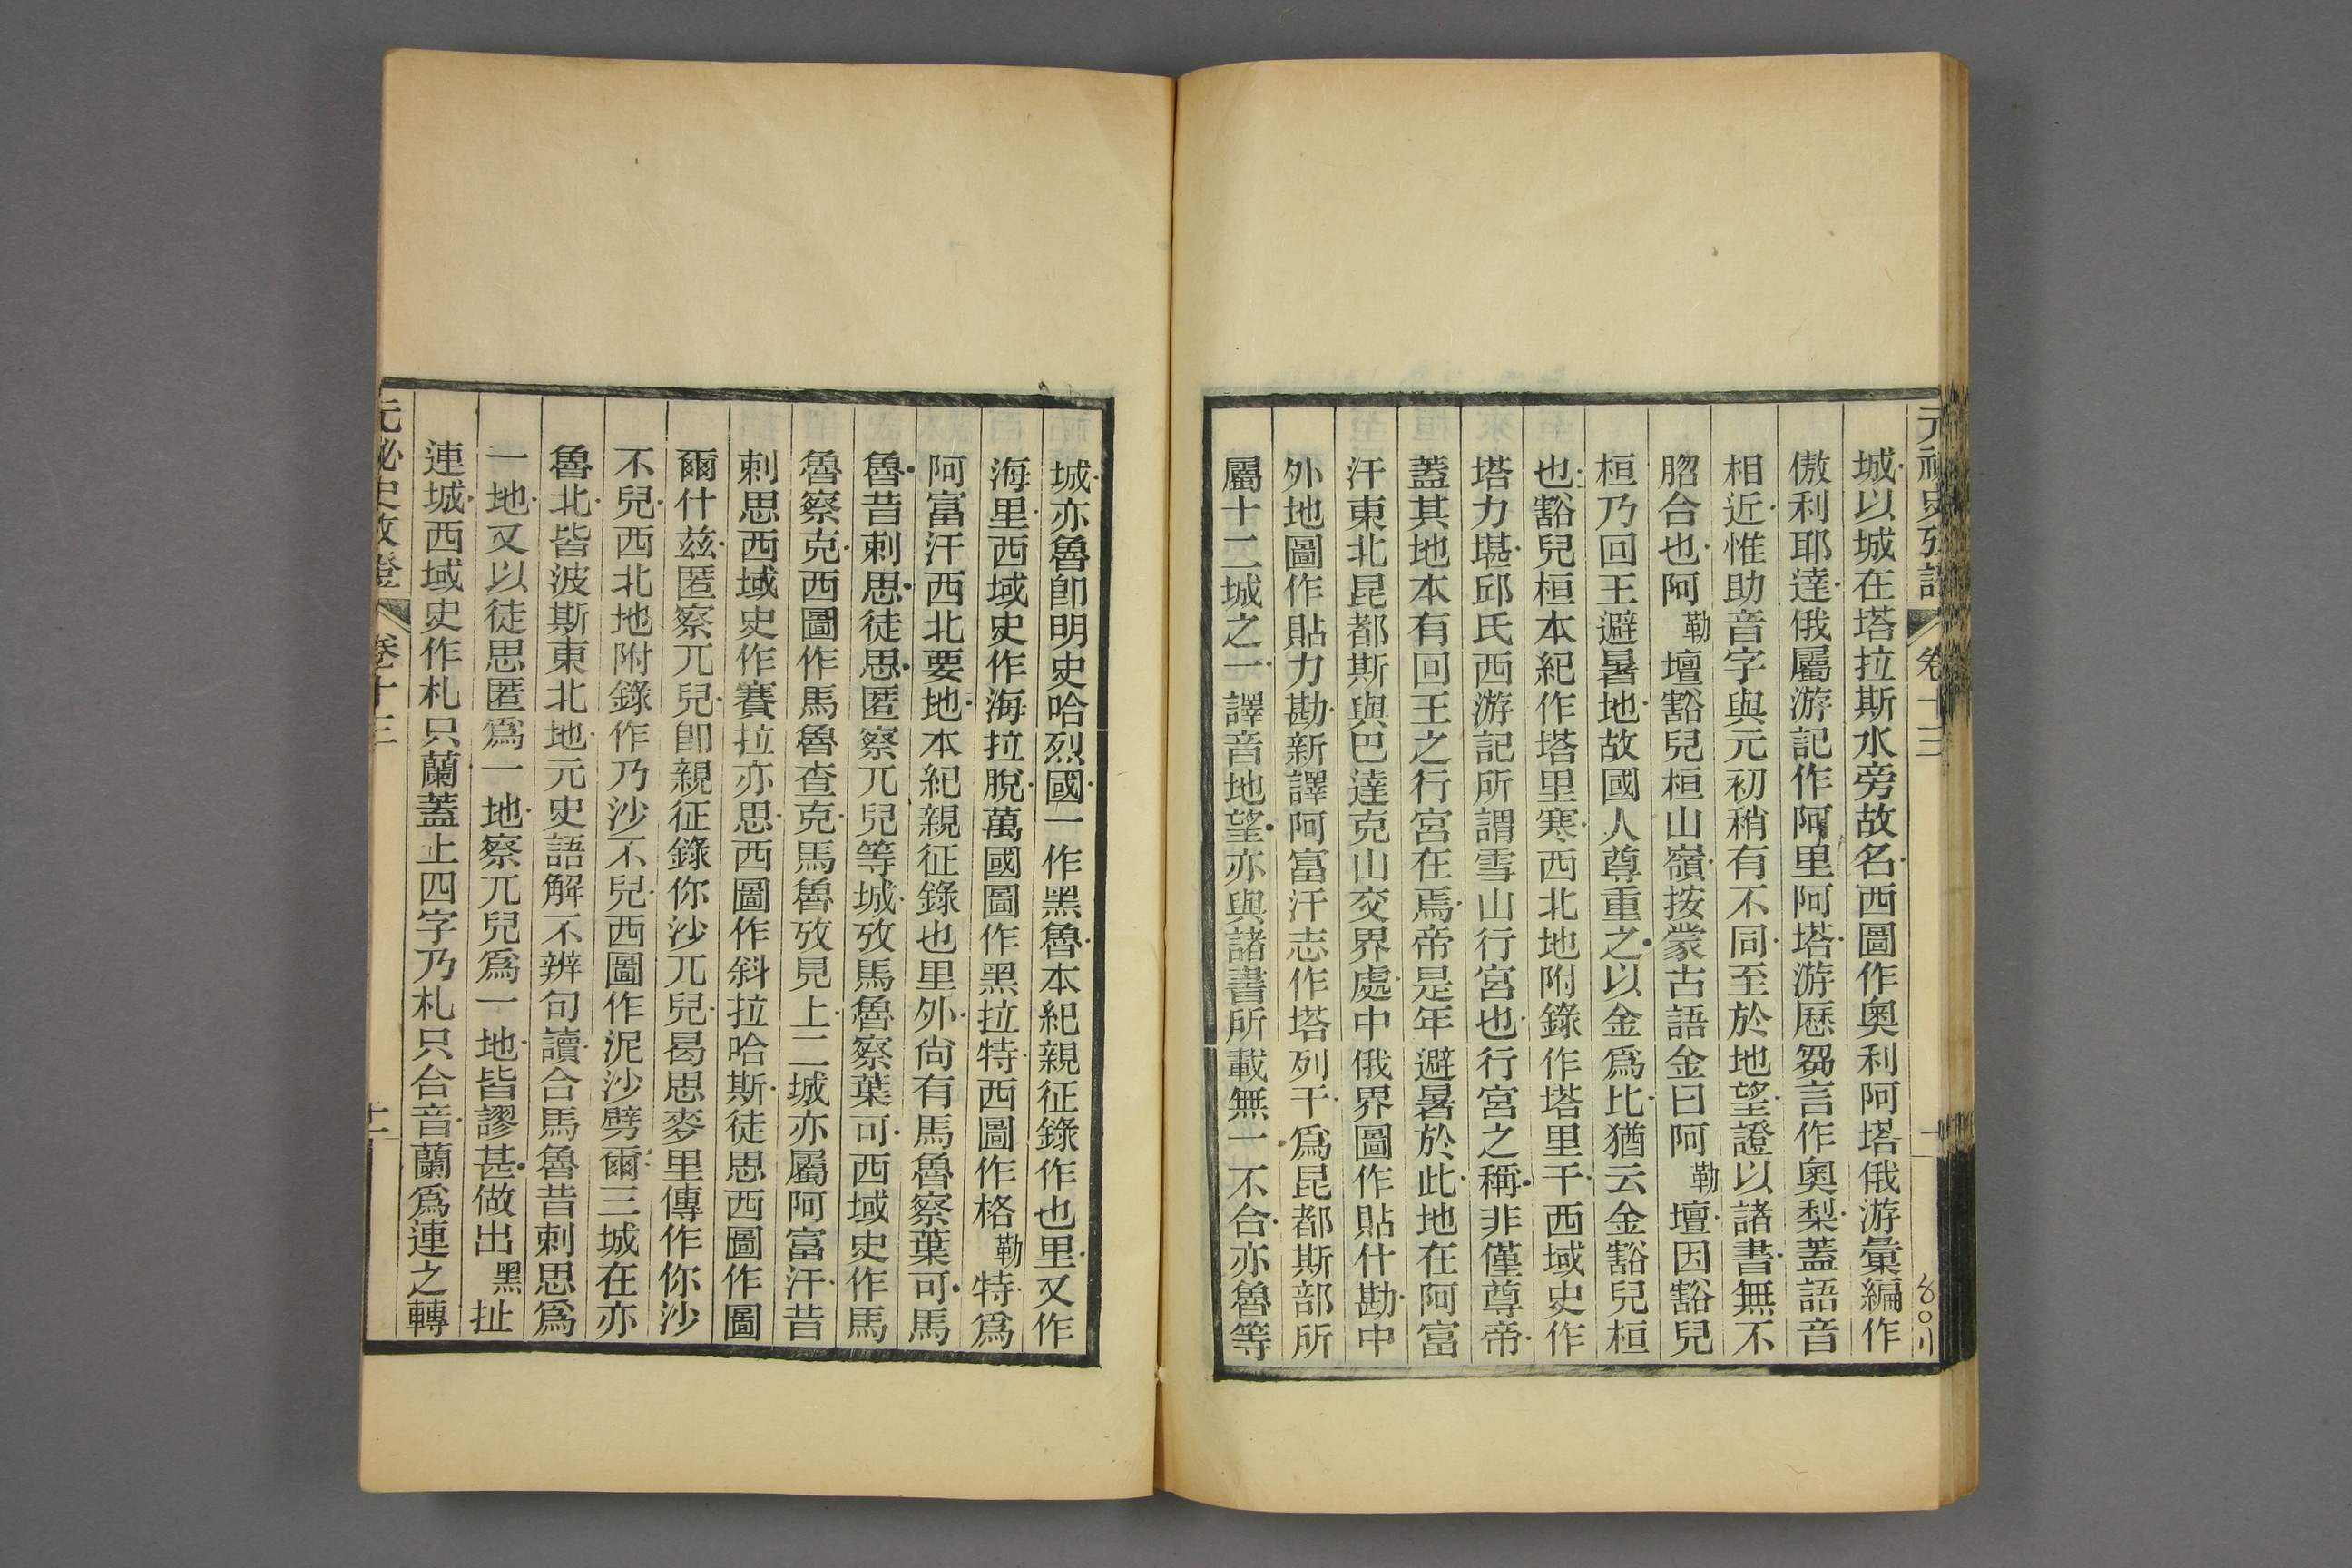 元祕史攷證 卷十三
城以城在塔拉斯水旁故名西圖作奧利阿塔俄游彙編作
傲利耶達俄屬游記作阿里阿塔游歷芻言作奧梨蓋語音
相近惟助音字與元初稍有不同至於地望證以諸書無不
脗合也阿勒壇豁兒桓山嶺按蒙古語金曰阿勒壇因豁兒
桓乃回王避暑地故國人尊重之以金爲比猶云金豁兒桓
也豁兒桓本紀作塔里寒西北地附錄作塔里干西域史作
塔力堪邱氏西游記所謂雪山行宮也行宮之稱非僅尊帝
蓋其地本有回王之行宮在焉帝是年避暑於此地在阿富
汗東北昆都斯與巴達克山交界處中俄界圖作貼什勘中
外地圖作貼力勘新譯阿富汗志作塔列干爲昆都斯部所
屬十二城之一譯音地望亦與諸書所載無一不合亦魯等
城亦魯卽明史哈烈國一作黑魯本紀親征錄作也里又作
海里西域史作海拉脫萬國圖作黑拉特西圖作格勒特爲
阿富汗西北要地本紀親征錄也里外尙有馬魯察葉可馬
魯昔剌思徒思匿察兀兒等城攷馬魯察葉可西域史作馬
魯察克西圖作馬魯查克馬魯攷見上二城亦屬阿富汗昔
剌思西域史作賽拉亦思西圖作斜拉哈斯徒思西圖作圖
爾什茲匿察兀兒卽親征錄你沙兀兒曷思麥里傳作你沙
不兒西北地附錄作乃沙不兒西圖作泥沙劈爾三城在亦
魯北皆波斯東北地元史語解不辨句讀合馬魯昔剌思爲
一地又以徒思匿爲一地察兀兒爲一地皆謬甚做出黑扯
連城西域史作札只蘭蓋上四字乃札只合音蘭爲連之轉
元祕史攷證 卷十三